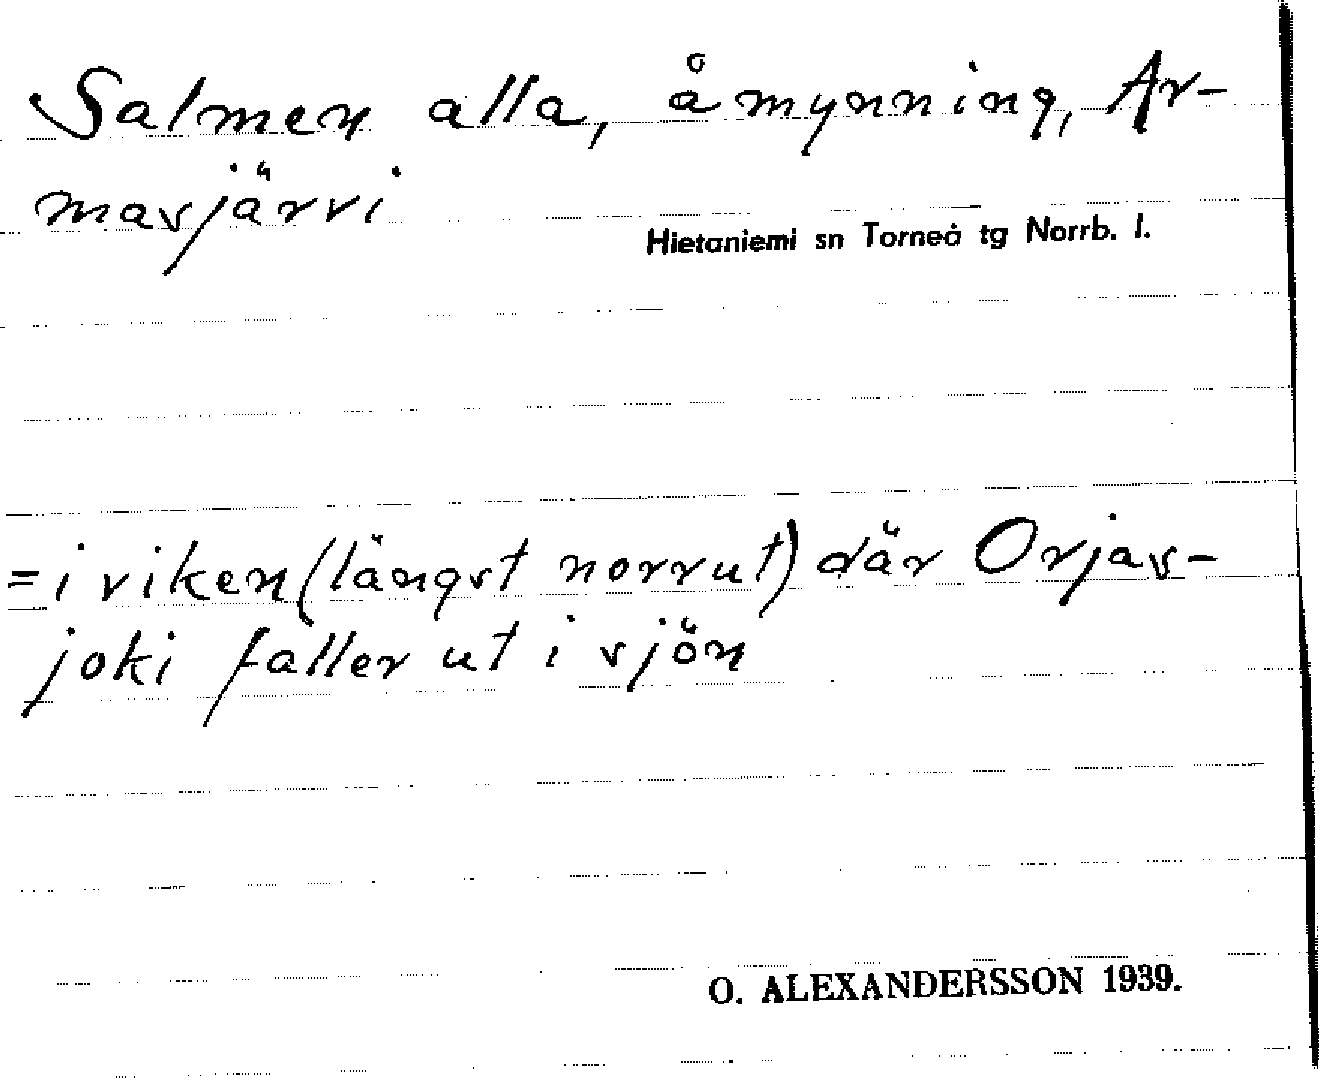 Salmen alla, åmynning, Ar-
masjärvi
Hietaniemi sn Torneå tg Norrb. l.
= i viken (längst norrut) där Orjas-
joki faller ut i sjön
O. ALEXANDERSSON 1939.